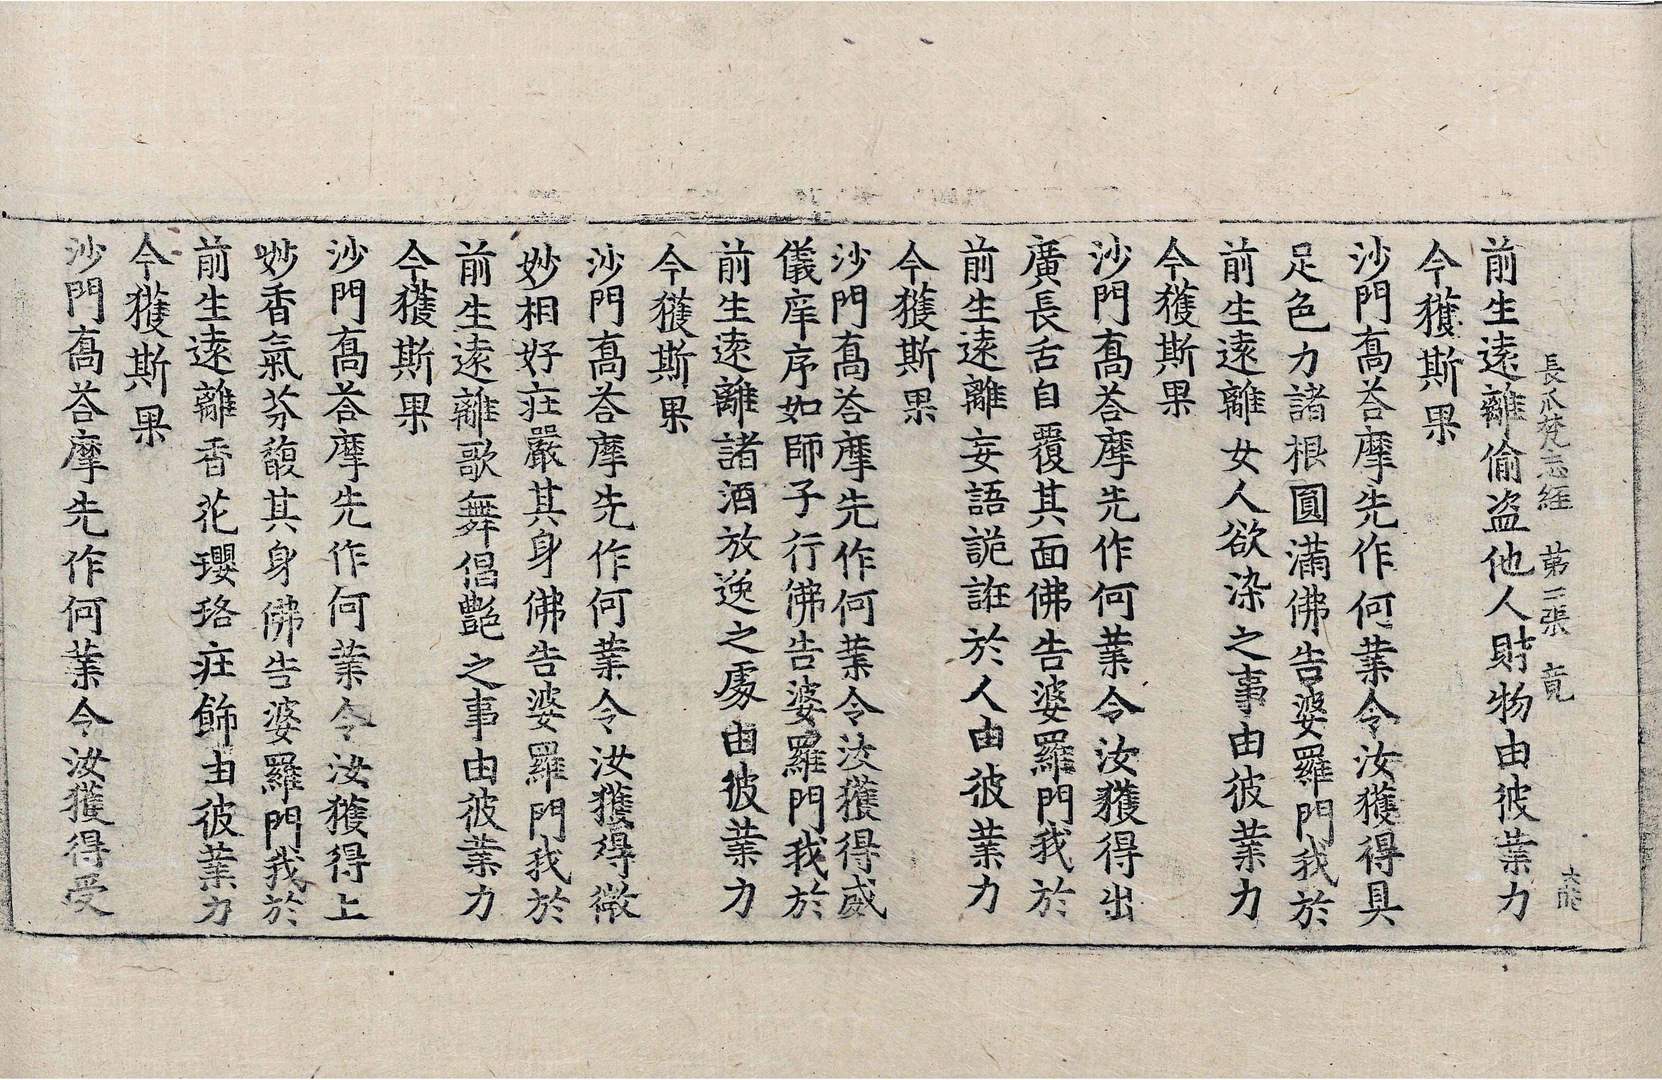 長爪梵志経　第二張　竟
前生遠離偷盗他人財物由彼業力
今獲斯果
沙門髙荅摩先作何業令汝獲得具
足色力諸根圓滿佛告婆羅門我於
前生遠離女人欲染之事由彼業力
今獲斯果
沙門髙荅摩先作何業令汝獲得出
廣長舌自覆其面佛告婆羅門我於
前生遠離妄語詭誑於人由彼業力
今獲斯果
沙門髙荅摩先作何業令汝獲得威
儀庠序如師子行佛告婆羅門我於
前生遠離諸酒放逸之處由彼業力
今獲斯果
沙門髙荅摩先作何業令汝獲得微
妙相好庄嚴其身佛告婆羅門我於
前生遠離歌舞倡艶之事由彼業力
今獲斯果
沙門髙荅摩先作何業令汝獲得上
妙香氣芬馥其身佛告婆羅門我於
前生遠離香花瓔珞庄飾由彼業力
今獲斯果
沙門髙荅摩先作何業令汝獲得受